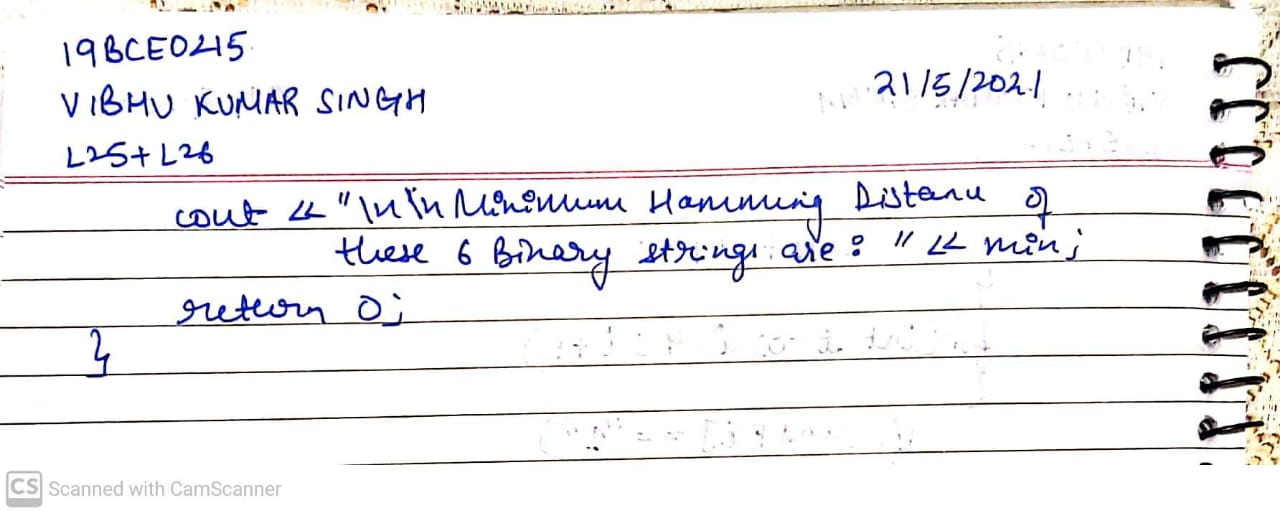 19BCE0215
VIBHU KUMAR SINGH
21/5/2021
L25+L26
cout << "\n\n Minimum Hamming Distance of
these 6 Binary strings are : " << min;
return 0;
}
CS Scanned with CamScanner